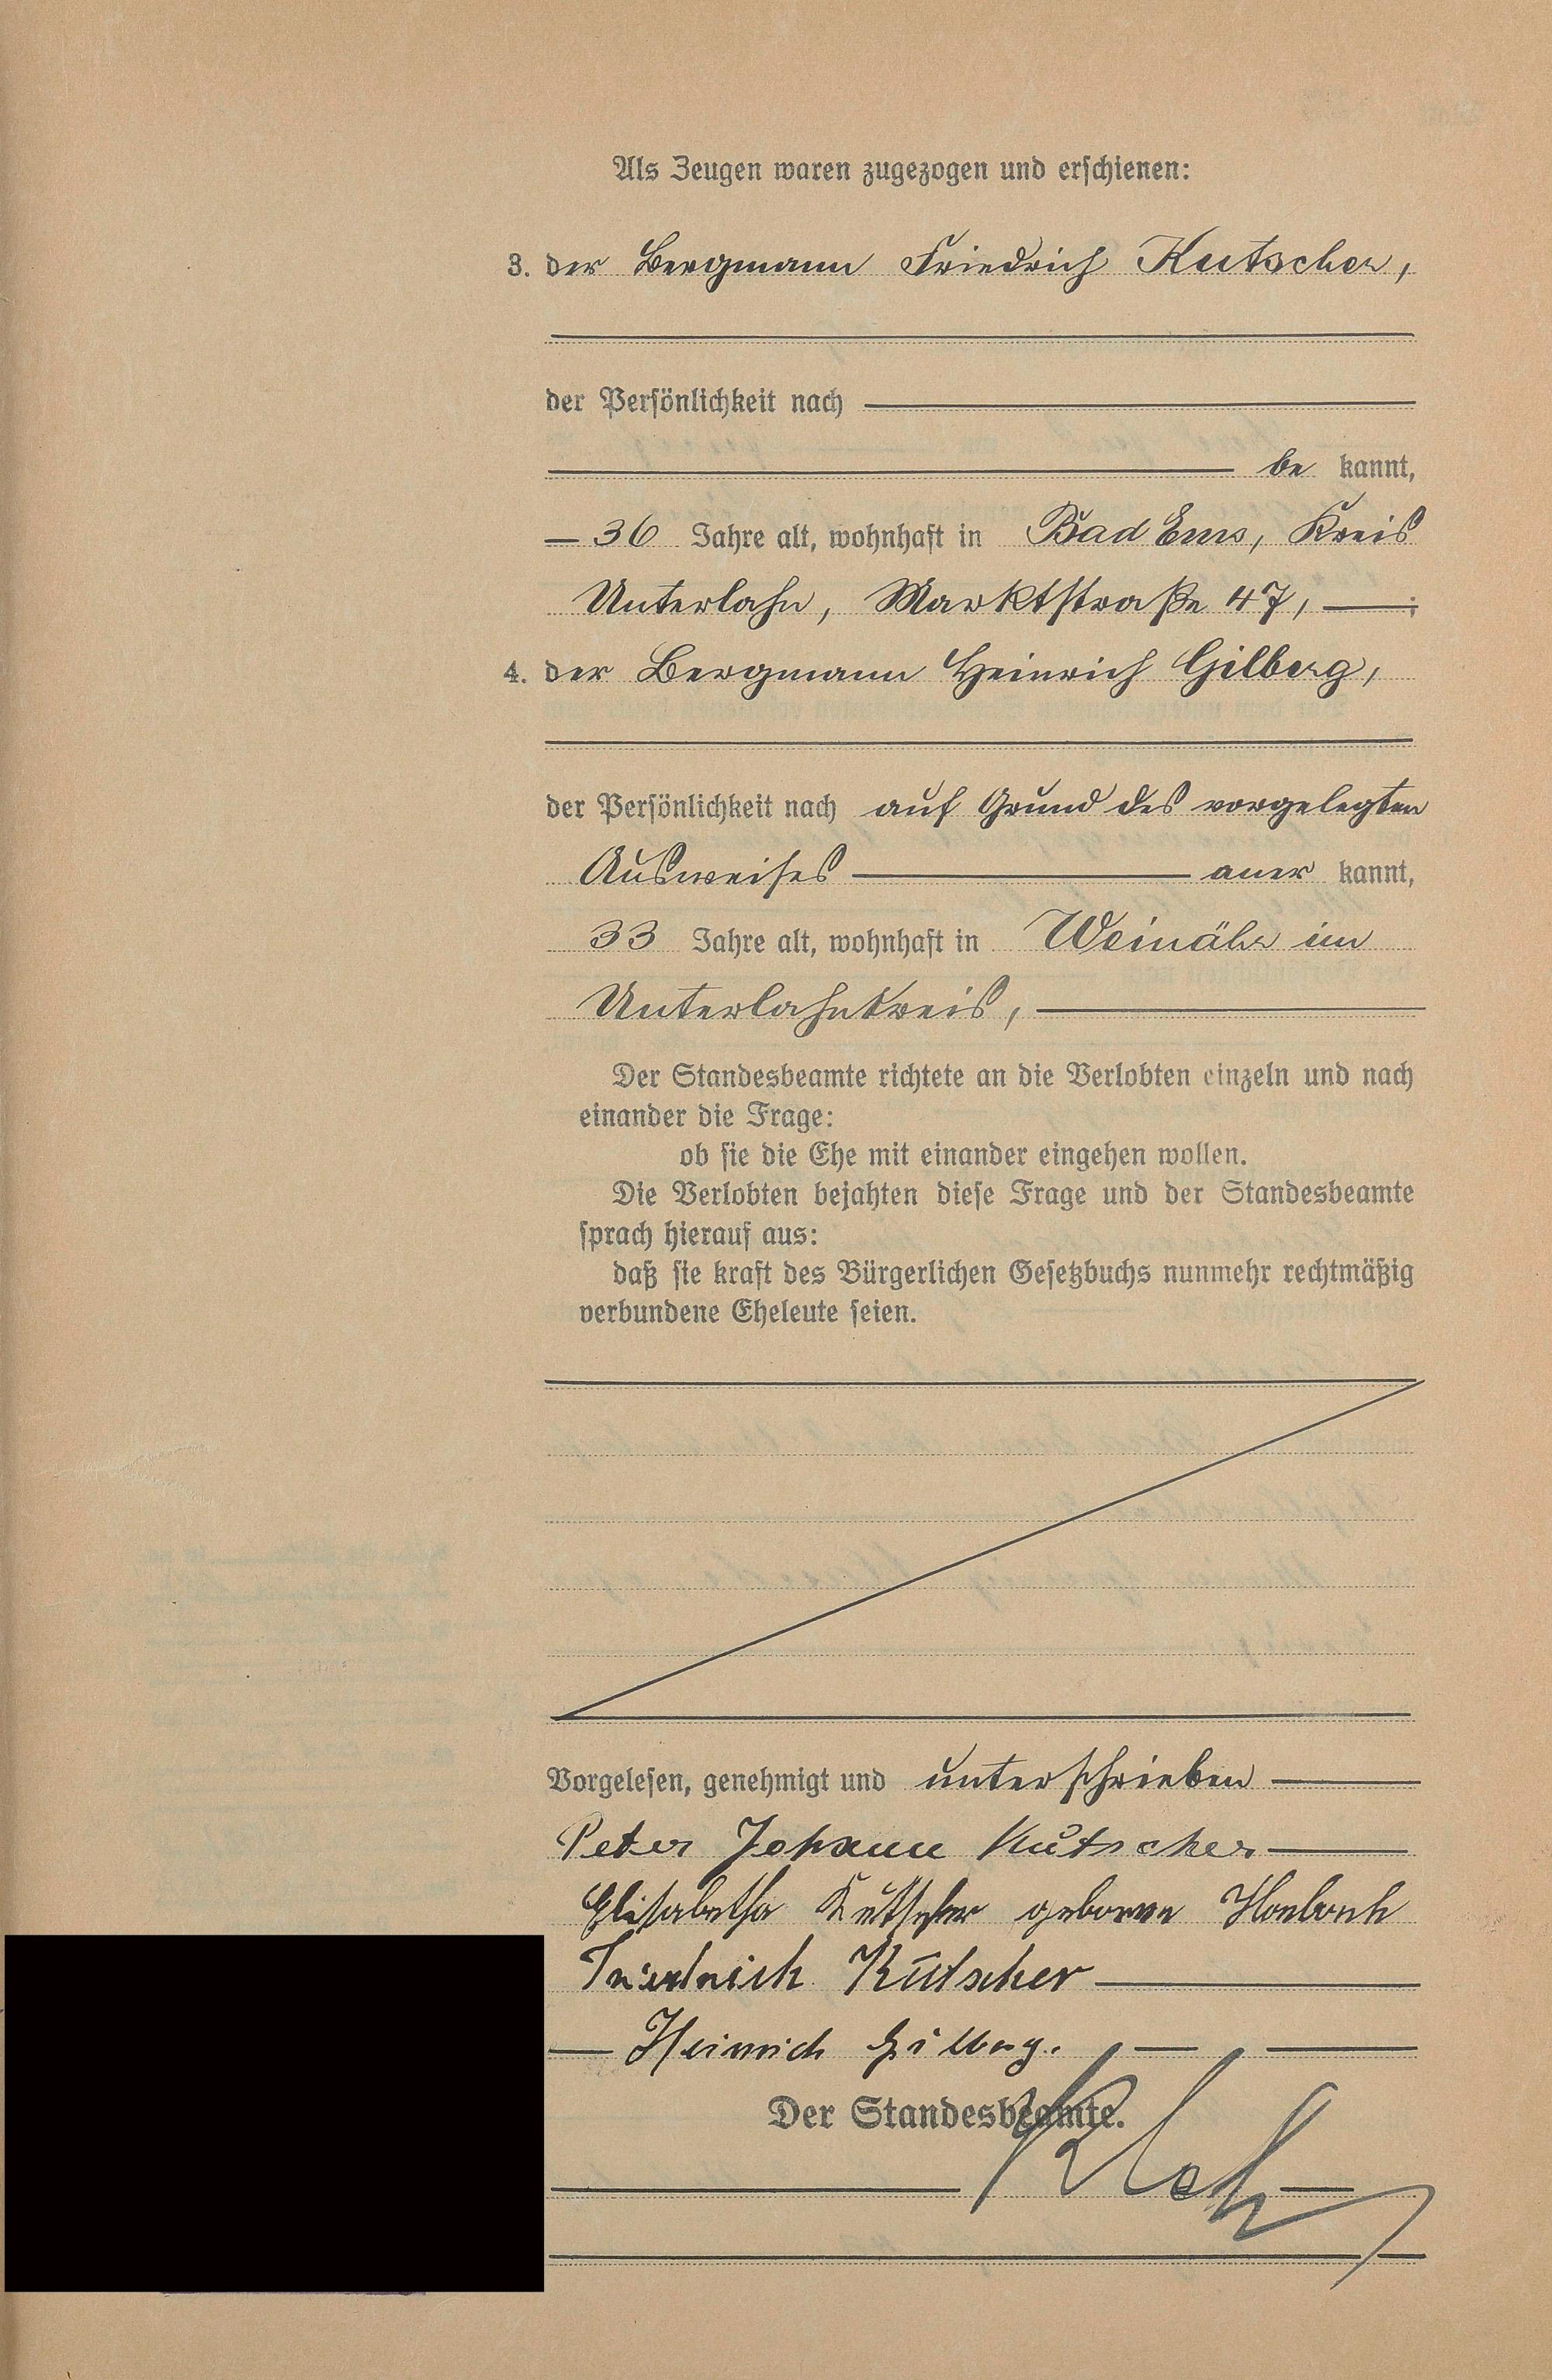 Als Zeugen waren zugezogen und erschienen:
3. der Bergmann Friedrich Kutscher,
der Persönlichkeit nach
be kannt,
36 Jahre alt, wohnhaft in Bad Ems, Kreis
Unterlahn, Marktstraße 47, ;
4. der Bergmann Heinrich Gilberg,
der Persönlichkeit nach auf Grund des vorgelegten
Ausweises aner kannt,
33 Jahre alt, wohnhaft in Weinähr im
Unterlahnkreis,
Der Standesbeamte richtete an die Verlobten einzeln und nach
einander die Frage:
ob sie die Ehe mit einander eingehen wollen.
Die Verlobten bejahten diese Frage und der Standesbeamte
sprach hierauf aus:
daß sie kraft des Bürgerlichen Gesetzbuchs nunmehr rechtmäßig
verbundene Eheleute seien.
Vorgelesen, genehmigt und unterschrieben
Peter Johann Kutscher
Elisabetha Kutscher geborene
Friedrich Kutscher
Heinrich Gilberg.
Der Standesbeamte.